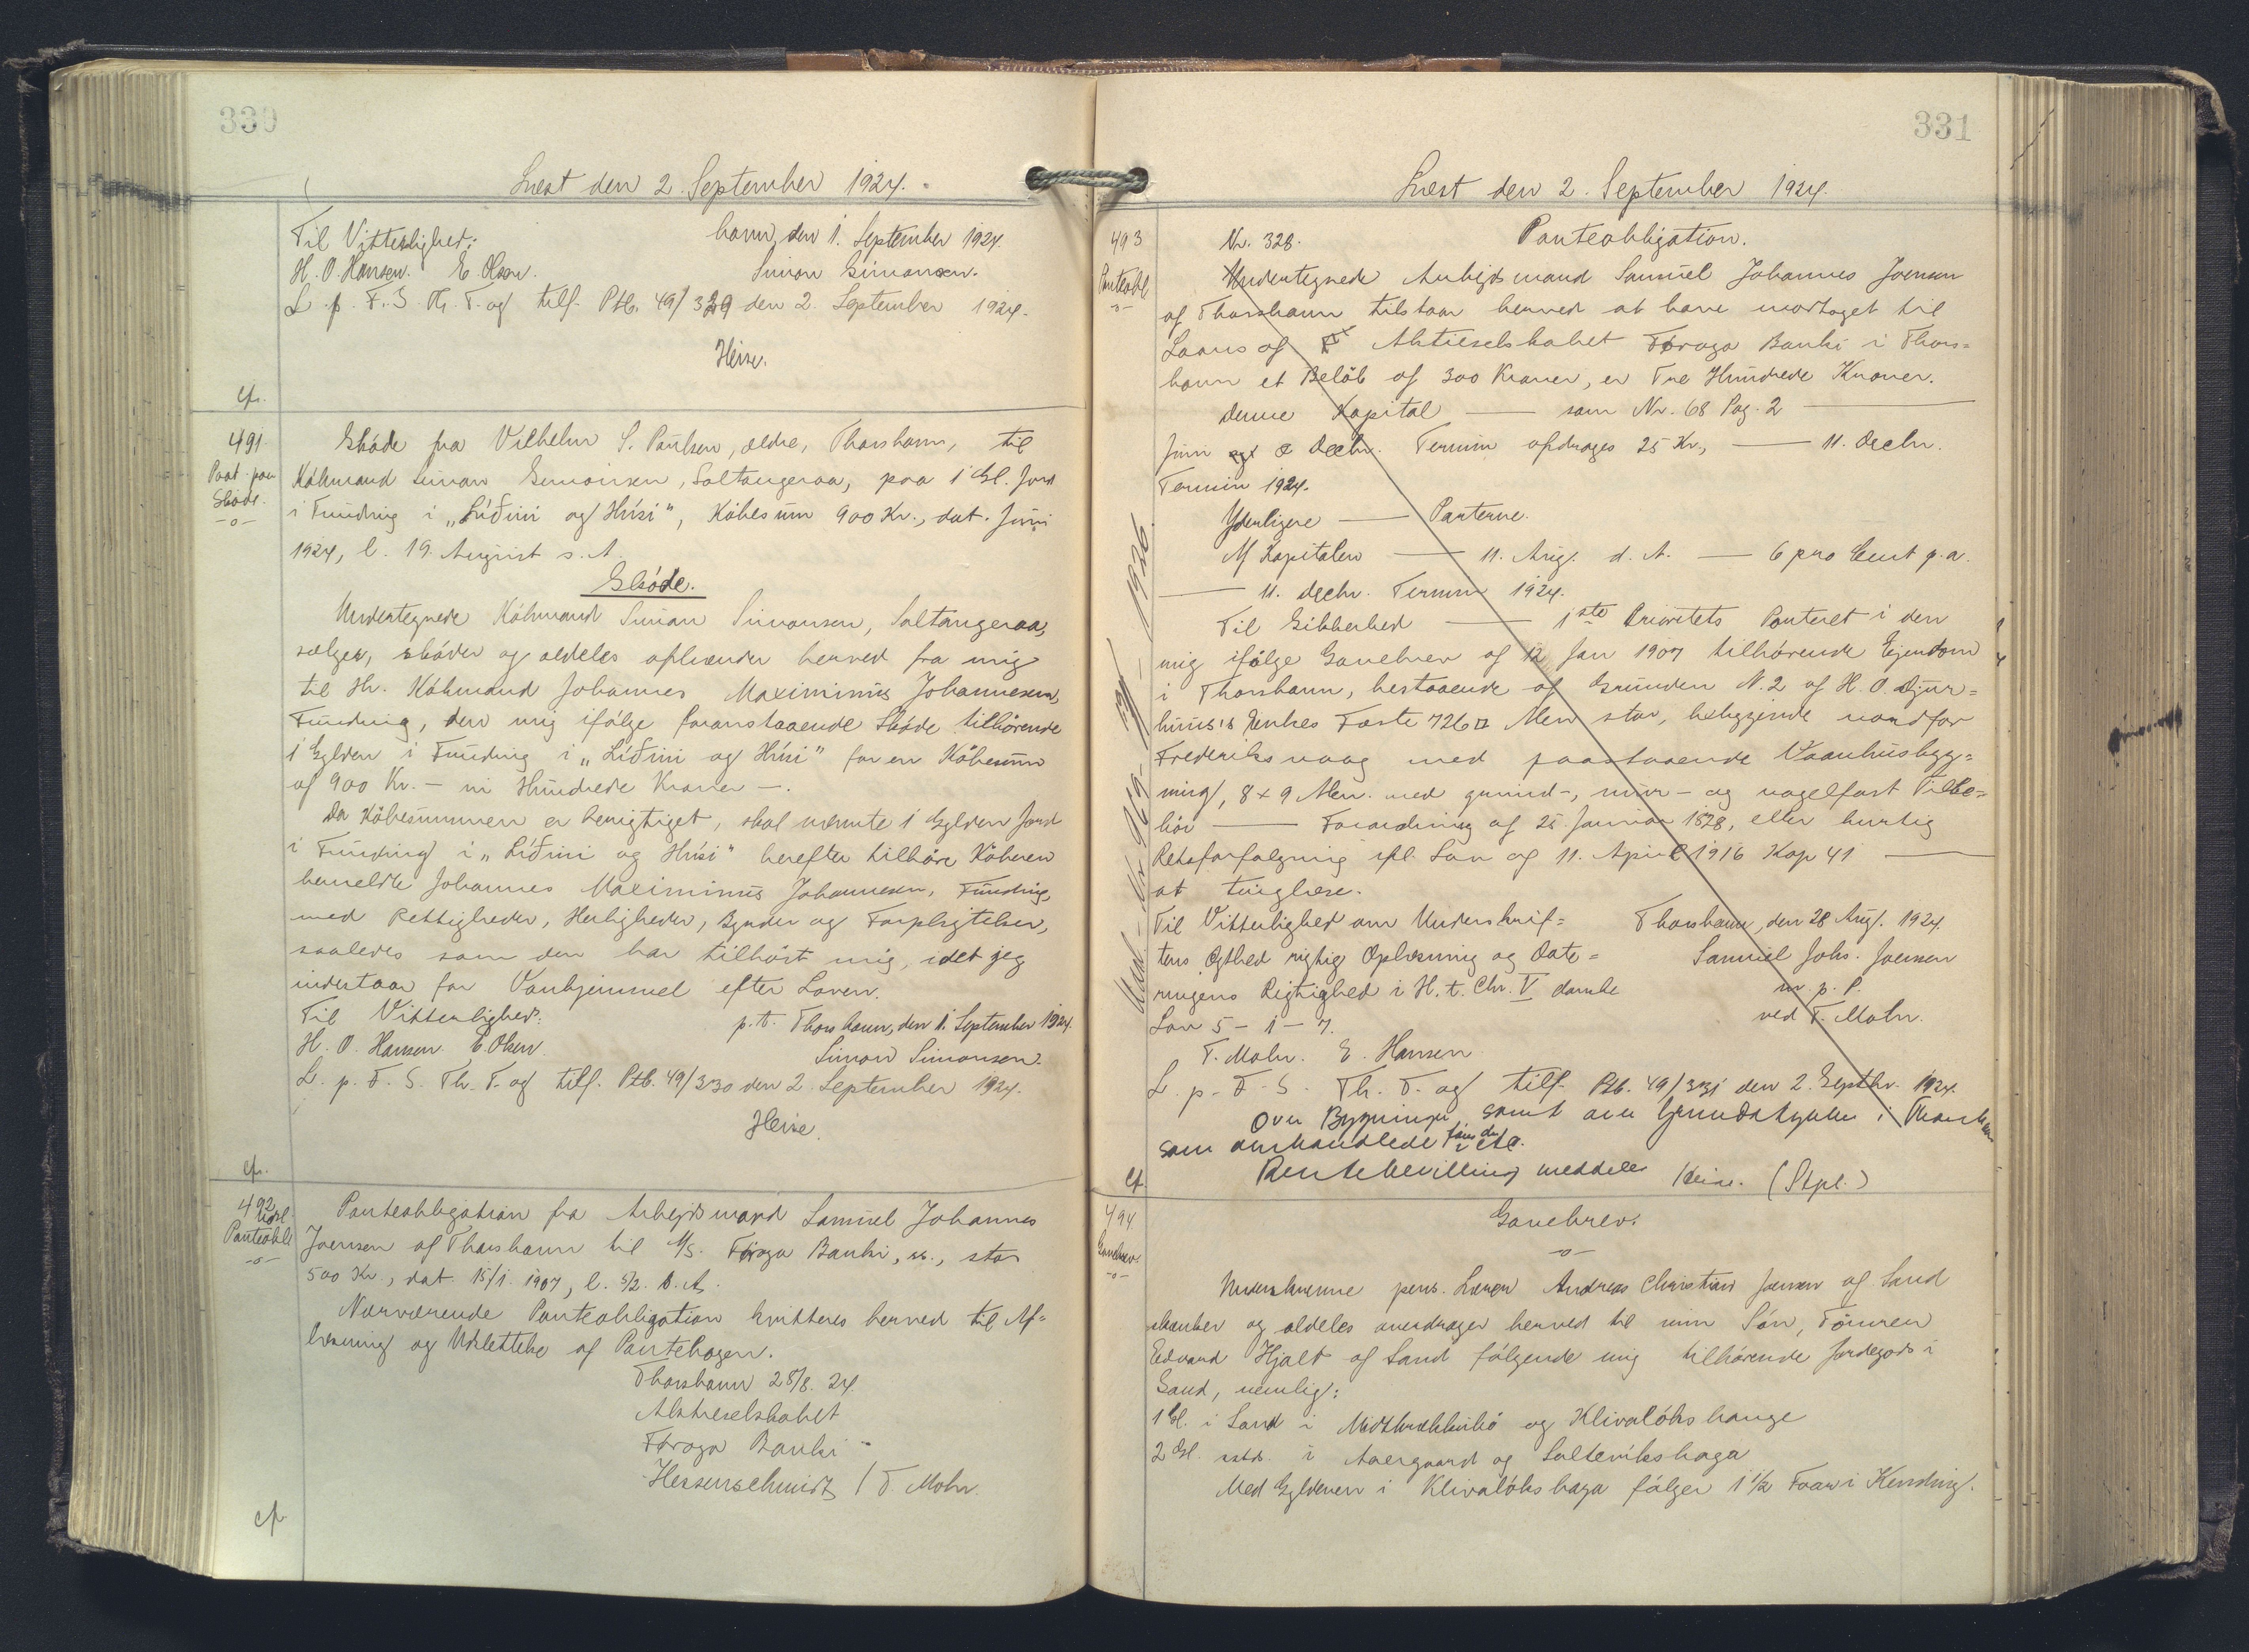 330
Læst den 2. September 1924.
Til Vitterlighed: havn, den 1. September 1924.
H. O. Hansen. E. Olsen. Simon Simonsen.
L. p. F. S. Th. T. og tilf. Ptb. 49/329 den 2. September 1924.
Heise.
cfr.
491.
Paat. paa
Skóde.
-o-
Skóde fra Vilhelm S. Paulsen, ældre, Thorshavn, til
Kóbmand Simon Simonsen, Saltangeraa, paa 1 Gl. Jord
i Funding i „Líðini og Húsi", Kóbesum 900 Kr., dat. Juni
1924, l. 19. August s. A.
Skóde.
Undertegnede Kóbmand Simon Simonsen, Saltangeraa,
sælger, skóder og aldeles afhænder herved fra mig
til Hr. Kóbmand Johannes Maximinus Johannesen,
Funding, den mig ifólge foranstaaende Skóde tilhórende
1 Gylden i Funding i „Líðini og Húsi" for en Kóbesum
af 900 Kr. - ni Hundrede Kroner -.
Da Kóbesummen er berigtiget, skal nævnte 1 Gylden Jord
i Funding i „Líðini og Húsi" herefter tilhóre Kóberen
bemeldte Johannes Maximinus Johannesen, Funding,
med Rettigheder, Herligheder, Byrder og Forpligtelser,
saaledes som den har tilhórt mig, idet jeg
indestaar for Vanhjemmel efter Loven.
Til Vitterlighed: p.t. Thorshavn, den 1. September 1924.
H. O. Hansen. E. Olsen. Simon Simonsen.
L. p. F. S. Th. T. og tilf. Ptb. 49/330 den 2. September 1924.
Heise.
cfr.
492
Udsl.
Panteobl.
-o-
Panteobligation fra Arbejdsmand Samuel Johannes
Joensen af Thorshavn til A/S. Fóroya Banki, ss., stor
500 Kr., dat. 15/1. 1907, l. 5/2. s. A.
Nærværende Panteobligation kvitteres herved til Af-
læsning og Udslettelse af Pantebogen.
Thorshavn 28/8. 24.
Aktieselskabet
Fóroya Banki
Hessenschmidt / T. Mohr.
cfr.
331
Læst den 2. September 1924.
493
Panteobl.
-o-
Nr. 328. Panteobligation.
Undertegnede Arbejdsmand Samuel Johannes Joensen
af Thorshavn tilstaar herved at have modtaget til
Laans af Aktieselskabet Fóroya Banki i Thors-
havn et Belób af 300 Kroner, er Tre Hundrede Kroner.
Denne Kapital — som Nr. 68 Pag. 2 —
Juni & Decbr. Termin afdrages 25 Kr., — 11. Decbr.
Termin 1924.
Yderligere — Panterne.
Af Kapitalen — 11. Aug. d. A. — 6 pro Cent p.a.
— 11. Decbr. Termin 1924.
Til Sikkerhed — 1ste Prioritets Panteret i den
mig ifólge Gavebrev af 12 Jan 1907 tilhórende Ejendom
i Thorshavn, bestaaende af Grunden N. 2 af H. O. Djur-
huus's Enkes Fæste 726 □ Alen stor, beliggende nordfor
Frederiksvaag med paastaaende Vaanhusbyg-
ning, 8 x 9 Alen. med grund-, mur- og nagelfast Tilbe-
hór — Forordning af 25. Januar 1828, eller hurtig
Retsforfølgning ifl. Lov af 11. April 1916 Kap 41 —
at tinglæse.
Til Vitterlighed om Underskrif- Thorshavn, den 28 Aug. 1924.
tens Ægthed rigtig Oplæsning og Date- Samuel Johs. Joensen
ringens Rigtighed i H. t. Chr. V danske m. p. P.
Lov 5 - 1 - 7. ved T. Mohr.
T. Mohr. E. Hansen
L. p. F. S. Th. T. og tilf. Ptb. 49/331 den 2. Septbr. 1924.
Over Bygningen samt over Grundstykket i Thorshavn
som omhandlede
Rentebevilling meddeles Heise. (Stpl.)
cf.
Udsl. Nr. 969 1926.
494.
Gavebrev.
-o-
Gavebrev.
-o-
Underskrevne pens. Lærer Andreas Christian Jensen af Sand
skænker og aldeles overdrager herved til min Són, Tómrer
Edvard Hjalt af Sand fólgende mig tilhórende Jordegods i
Sand, nemlig:
1 Gl. i Sand i og Klivalóks hauge
2 Gl. sstds. i Aaergaard og Salteriks haga
Med Gyldenen i Klivalóks haga fólger 1 1/2 Faar i Kending.